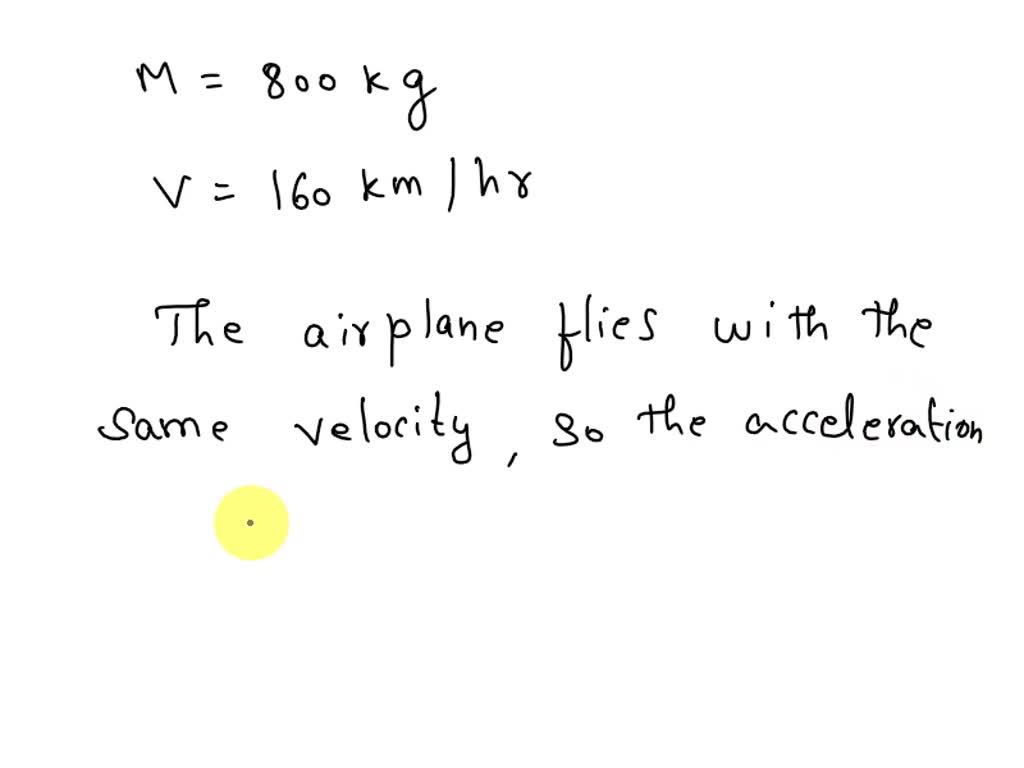 M = 800 kg
V = 160 km/hr
The airplane flies with the
same velocity, so the acceleration